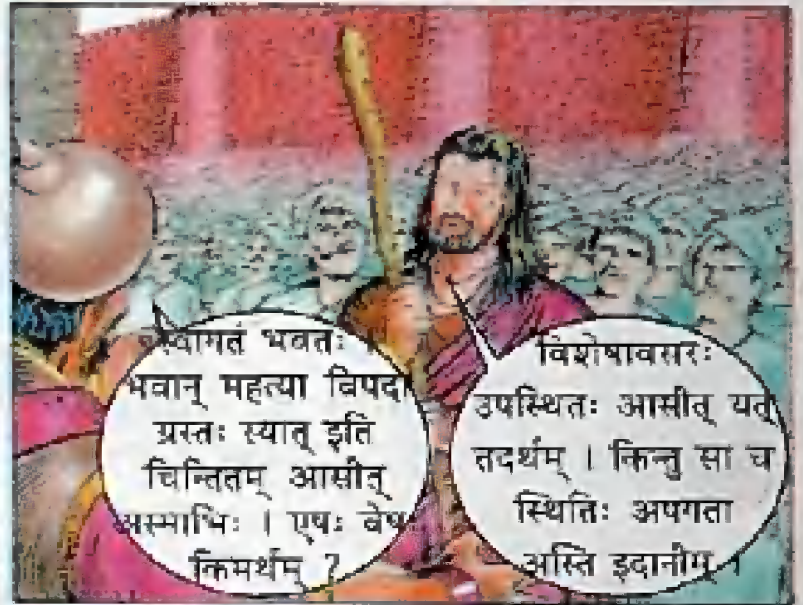 स्वागतं भवतः ।
भवान् महत्या विपदा
ग्रस्तः स्यात् इति
चिन्तितम् आसीत्
अस्माभिः । एषः वेषः
किमर्थम् ?
विशेषावसरः
उपस्थितः आसीत् यत्
तदर्थम् । किन्तु सा च
स्थितिः अपगता
अस्ति इदानीम् ।